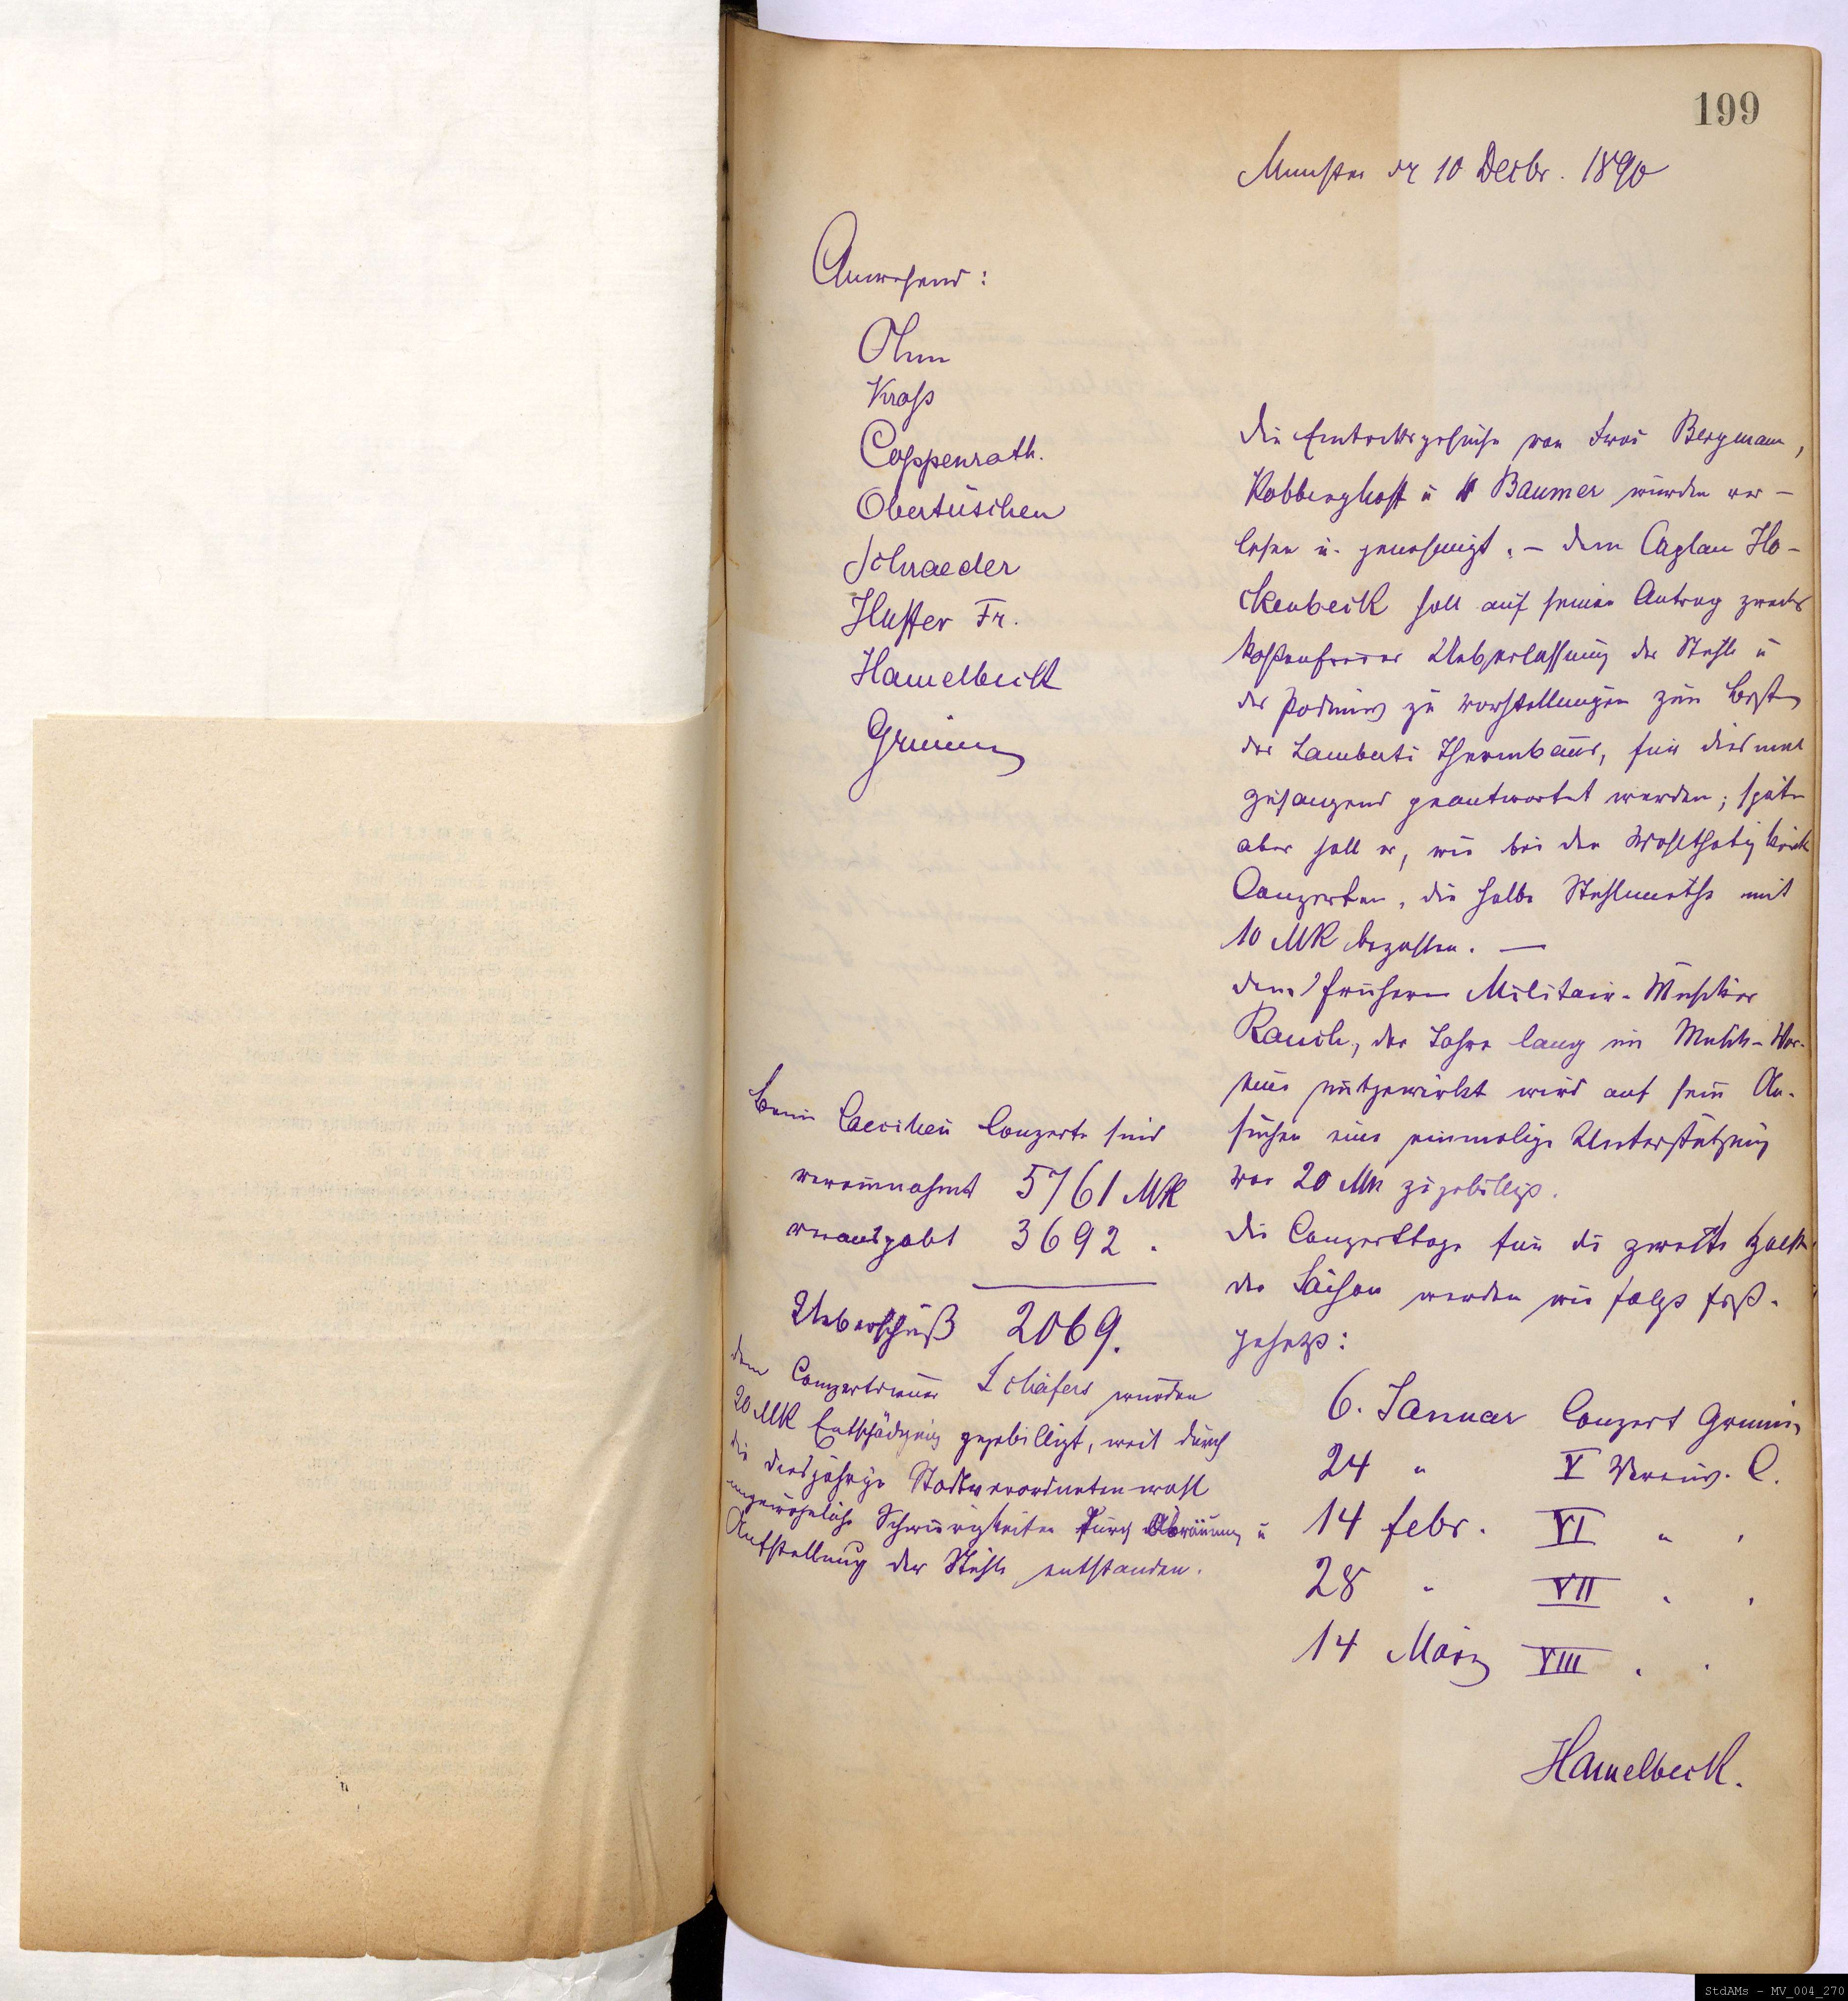 199
Munster dr 10 Decbr. 1890
Anwesend:
Ohm
Krass
Coppenrath.
Obertüschen
Schraeder
Huffer Fr.
Hamelbeck
Grimm
Die Eintrittsgesuche von Bergmann,
Kobbinghoff u Baumer wurden ver-
lesen u. genehmigt. – Dem Caplan Ho-
ckenbeck soll auf seinen Antrag zwecks
kostenfreier Ueberlassung der Stühle u
des Podiums zu Vorstellungen zum Besten
des Lamberti Thurmbaus, für dies mal
zusagend geantwortet werden; später
aber soll er, wie bei den Wohlthätigkeits
Conzerten, die halbe Stuhlmiethe mit
10 MK bezahlen. —
Dem frühern Militair-Musiker
Rauch, der Jahre lang im Musik-Ver-
eine mitgewirkt wird auf sein An-
suchen eine einmalige Unterstützung
von 20 Mk zugebilligt.
Die Conzerttage für die zweite Hälfte
der Saison werden wie folgt fest-
gesetzt:
6. Januar Conzert Grimm
24 " V Vereins. C.
14 Febr. VI " "
28 " VII " "
14 März VIII " "
Hamelbeck.
Beim Caecilien Conzerte sind
vereinnahmt 5761 MK
verausgabt 3692 "
Ueberschuß 2069.
Dem Conzertdiener Schäfers wurden
20 MK Entschädigung zugebilligt, weil durch
die diesjährige Stadtverordnetenwahl
ungewöhnliche Schwierigkeiten durch Abräumung u
Aufstellung der Stühle entstanden.
StdAMs - MV_004_270